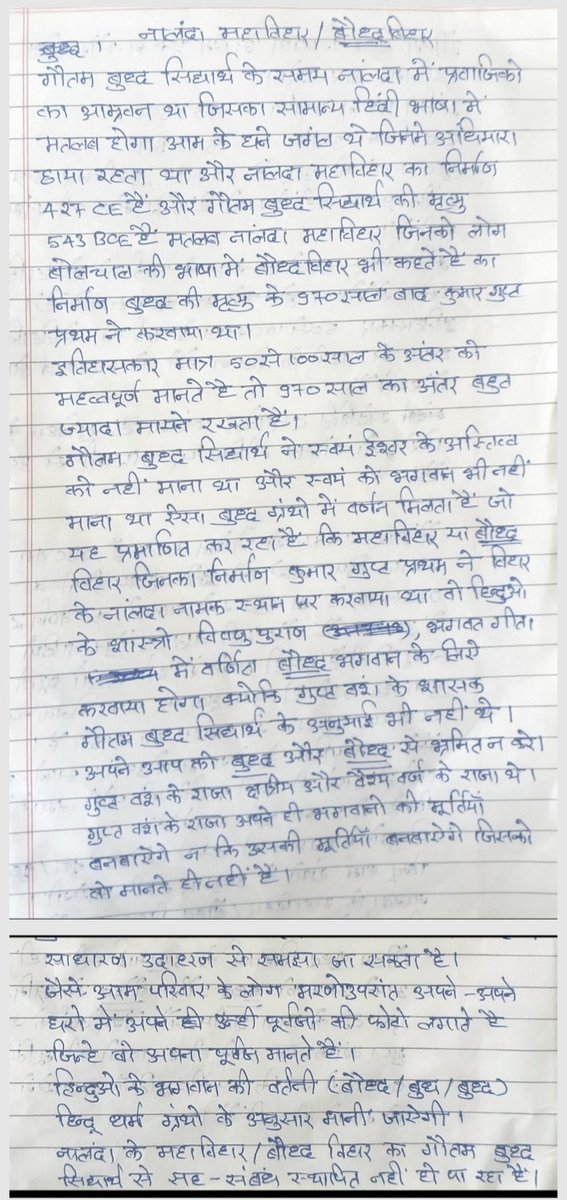 नालंदा महाविहार / बौध्द विहार
गौतम बुध्द सिध्दार्थ के समय नालंदा में प्रवाजिको
का आम्रवन था जिसका सामान्य हिंदी भाषा में
मतलब होगा आम के घने जगंल थे जिनमे अधियारा
छाया रहता था और नालंदा महाविहार का निर्माण
427 CE हैं और गौतम बुध्द सिध्दार्थ की मृत्यु
543 BCE हैं मतलब नालंदा महाविहार जिनको लोग
बोलचाल की भाषा में बौध्द विहार भी कहते हैं का
निर्माण बुध्द की मृत्यु के 970 साल बाद कुमार गुप्त
प्रथम ने करवाया था।
इतिहासकार मात्र 50 से 100 साल के अंतर को
महत्वपूर्ण मानते है तो 970 साल का अंतर बहुत
ज्यादा मायने रखता हैं।
गौतम बुध्द सिध्दार्थ ने स्वयं ईश्वर के अस्तित्व
को नहीं माना था और स्वयं को भगवान भी नहीं
माना था ऐसा बुध्द ग्रंथो में वर्णन मिलता हैं जो
यह प्रमाणित कर रहा है कि महाविहार या बौध्द
विहार जिनका निर्माण कुमार गुप्त प्रथम ने बिहार
के नालंदा नामक स्थान पर करवाया था वो हिन्दुओ
के शास्त्रो विष्णु पुराण , भगवत गीता
में वर्णित बौध्द भगवान के लिये
करवाया होगा क्योकि गुप्त वंश के शासक
गौतम बुध्द सिध्दार्थ के अनुयाई भी नहीं थे।
अपने आप को बुध्द और बौध्द से भ्रमित न करे।
गुप्त वंश के राजा क्षत्रीय और वैश्य वर्ण के राजा थे।
गुप्त वंश के राजा अपने ही भगवानो की मूर्तियाँ
बनबाऐगे न कि उसकी मूर्तियाँ बनबाऐगे जिसको
वो मानते ही नहीं हैं।
साधारण उदाहरण से समझा जा सकता है।
जैसे आम परिवार के लोग मरणोउपरांत अपने-अपने
घरो में अपने ही उन्ही पूर्वजो की फोटो लगाते है
जिन्हे वो अपना पूर्वज मानते हैं।
हिन्दुओ के भगवान की वर्तनी (बौध्द / बुध / बुध्द)
हिन्दू धर्म ग्रंथो के अनुसार मानी जाऐगी।
नालंदा के महाविहार / बौध्द विहार का गौतम बुध्द
सिध्दार्थ से सह-संबंध स्थापित नहीं हो पा रहा हैं।